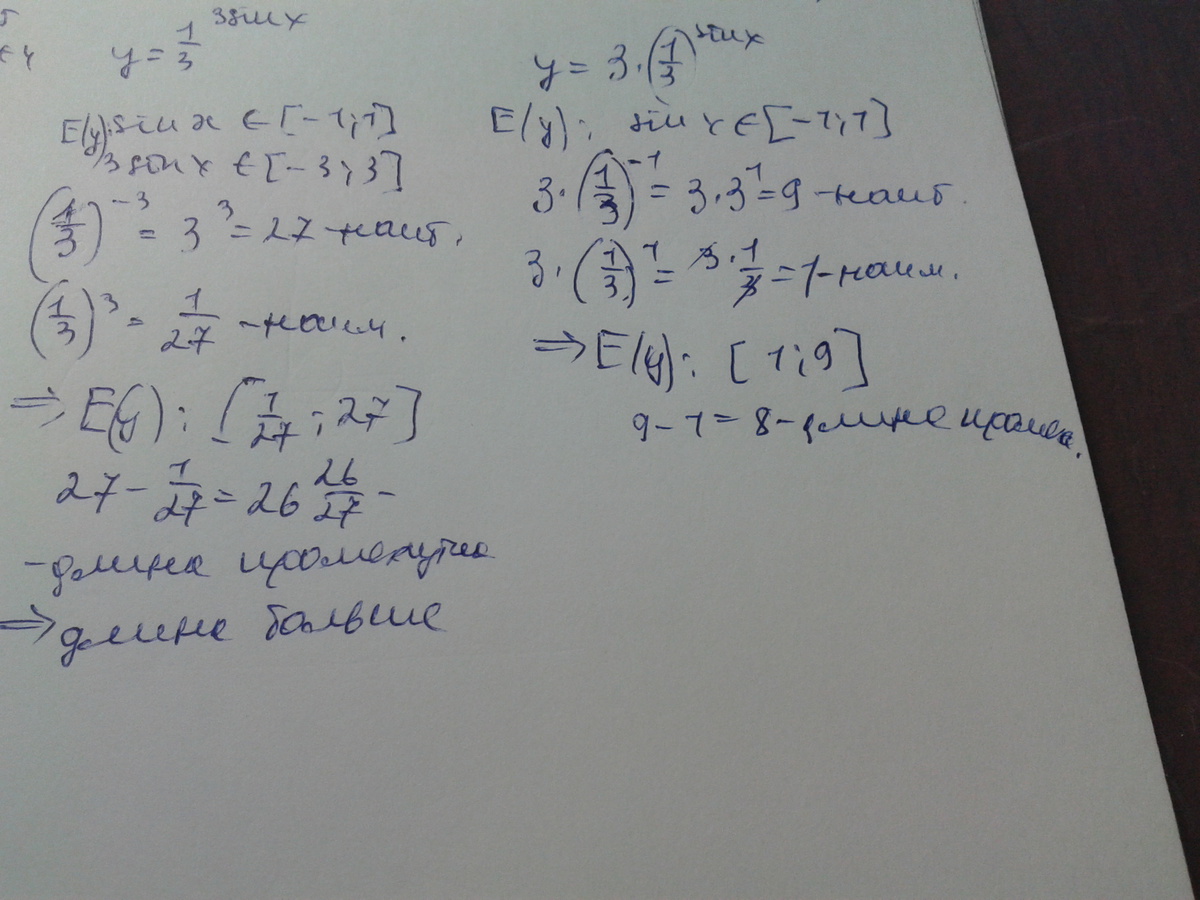 y = 1/3 ^ 3sinx
E(y): sin x ∈ [-1; 1]
3sinx ∈ [-3; 3]
(1/3)^-3 = 3^3 = 27 - наиб.
(1/3)^3 = 1/27 - наим.
⇒ E(y): [1/27; 27]
27 - 1/27 = 26 26/27 -
- длина промежутка
⇒ длина больше
y = 3·(1/3)^sinx
E(y): sin x ∈ [-1; 1]
3·(1/3)^-1 = 3·3^1 = 9 - наиб.
3·(1/3)^1 = 3·1/3 = 1 - наим.
⇒ E(y): [1; 9]
9 - 1 = 8 - длина промеж.